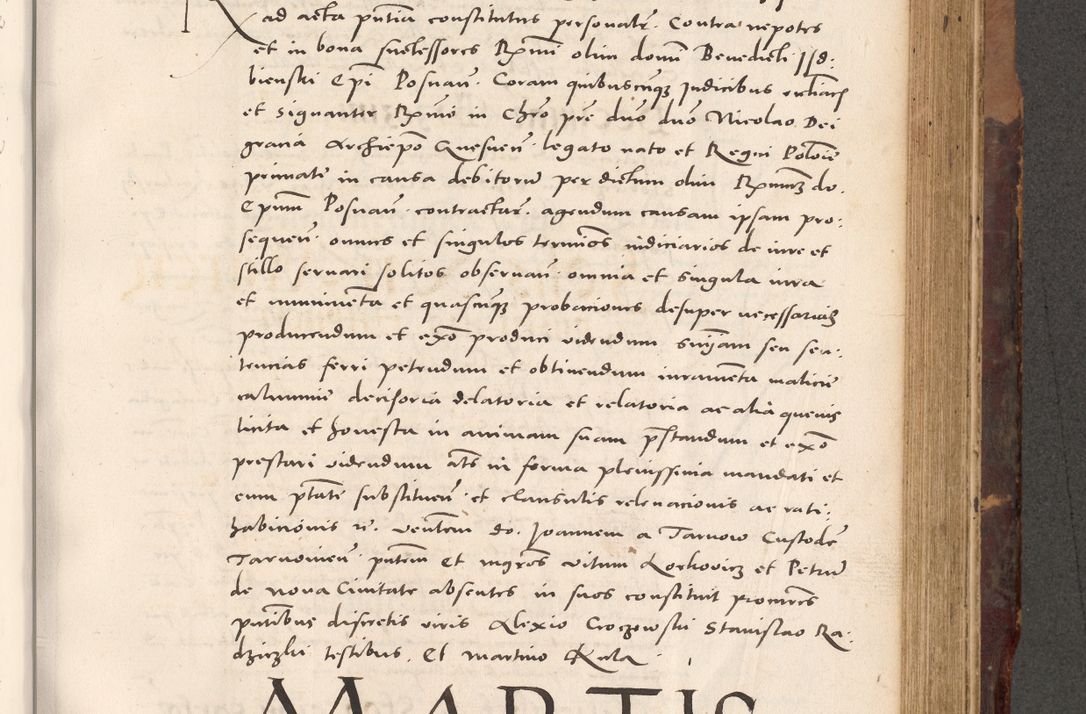 ad acta pntia constitutus personalr. Contra nepotes
et in bona successores Rxmi olim domi Benedicti Jsd:
bienski Epi Posnan. Coram quibuscunqz Judicibus
et signanter Rxmo in Chro pre dno dno Nicolao Dei
gracia Archiepo Gnesnen. legato nato et Regni Polonie
primate in causa debitorum per dictum olim Rxmum do.
Epum Posnan. contractar. agendum causam ipsam pro:
sequen. omnes et singulos terminos iudiciarios de iure et
stillo servari solitos observan. omnia et singula iura
et munimenta et quascunqz probaciones desuper necessarias
producendum et exo produci videndum sniam seu sen:
tencias ferri petendum et obtinendum iuramenta malicie
calumnie decisoria delatoria et relatoria ac alia quevis
licita et honesta in animam suam prstandum et exo
prestari videndum ats in forma plenissima mandati et
cum ptate substituen. et clausulis relevacionis ac rati:
habicionis rc. venlem do. Joannem a Tarnow Custode
Tarnovien. pntem Et mgros vitum Lorkovicz et Petrum
de nova Civitate absentes in suos constituit procures
pntibus discretis viris Alexio Croczowski Stanislao Ra:
dziczki testibus. Et martino Kula
MARTIS